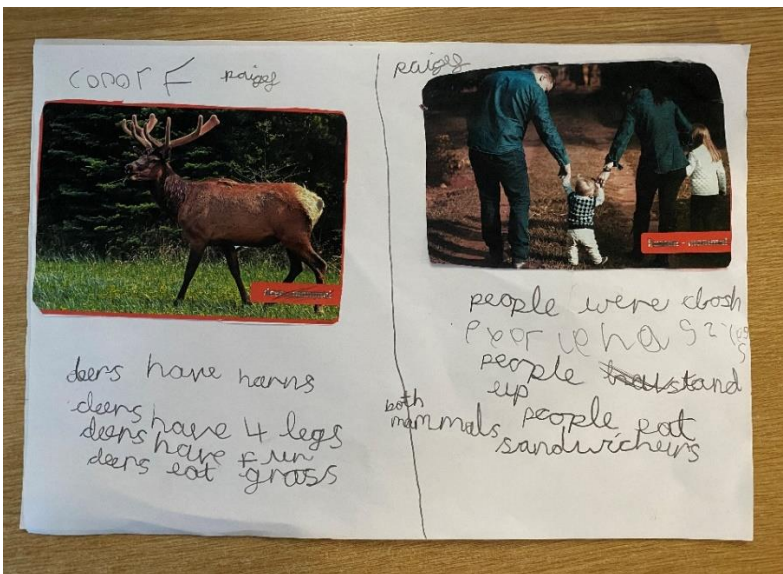 conor F paigs
deers have harns
deers have 4 legs
deers have fun
deers eat grass
paigs
people were closh
people
people stand
up
both
mammals
people eat
sandwicheirs